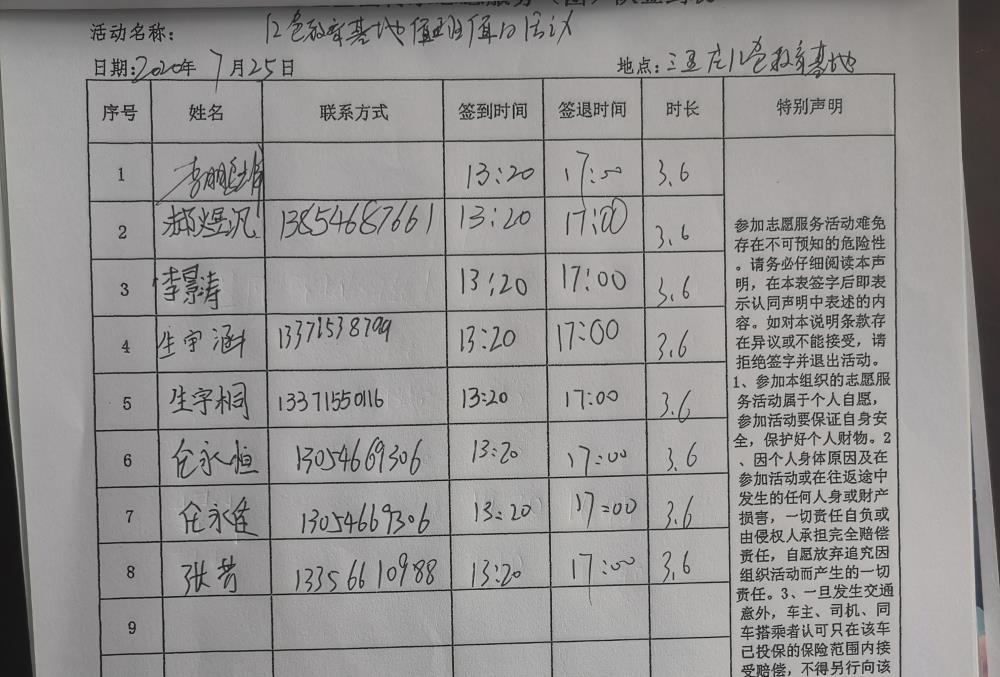 活动名称: 红色教育基地值班值日活动
日期: 2020年 7月25日 地点: 三五庄红色教育基地
序号 姓名 联系方式 签到时间 签退时间 时长 特别声明
1 13:20 17:00 3.6
2 郝煜汎 13854687661 13:20 17:00 3.6
3 李景涛 13:20 17:00 3.6
4 生宇涵 13371538799 13:20 17:00 3.6
5 生宇桐 13371550116 13:20 17:00 3.6
6 仉永恒 13054669306 13:20 17:00 3.6
7 仉永佳 13054669306 13:20 17:00 3.6
8 张芳 13356610988 13:20 17:00 3.6
9
参加志愿服务活动难免
存在不可预知的危险性
。请务必仔细阅读本声
明，在本表签字后即表
示认同声明中表述的内
容。如对本说明条款存
在异议或不能接受，请
拒绝签字并退出活动。
1、参加本组织的志愿服
务活动属于个人自愿，
参加活动要保证自身安
全，保护好个人财物。2
、因个人身体原因及在
参加活动或在往返途中
发生的任何人身或财产
损害，一切责任自负或
由侵权人承担完全赔偿
责任，自愿放弃追究因
组织活动而产生的一切
责任。3、一旦发生交通
意外，车主、司机、同
车搭乘者认可只在该车
已投保的保险范围内接
受赔偿，不得另行向该